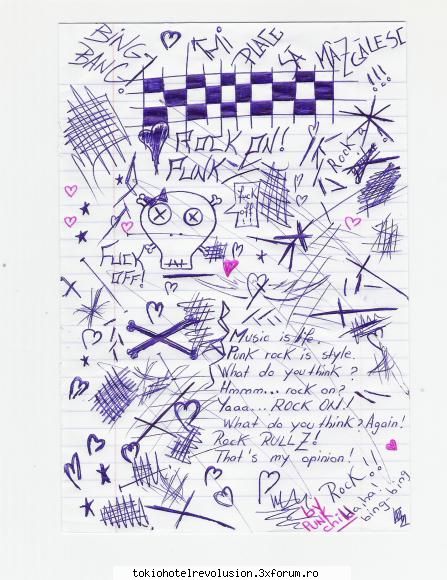 BING
BANG!
ÎMI PLACE SĂ MÂZGĂLESC!!!
ROCK ON!
PUNK
Rock
fuck
off!!
FUCK
OFF!
Music is life.
Punk rock is style.
What do you think?
Hmmm... rock on?
Yaaa... ROCK ON!!
What do you think? Again!
Rock RULLZ!
That's my opinion!
Rock!!!
by
Punk
child
bing-bing
tokiohotelrevolusion.3xforum.ro